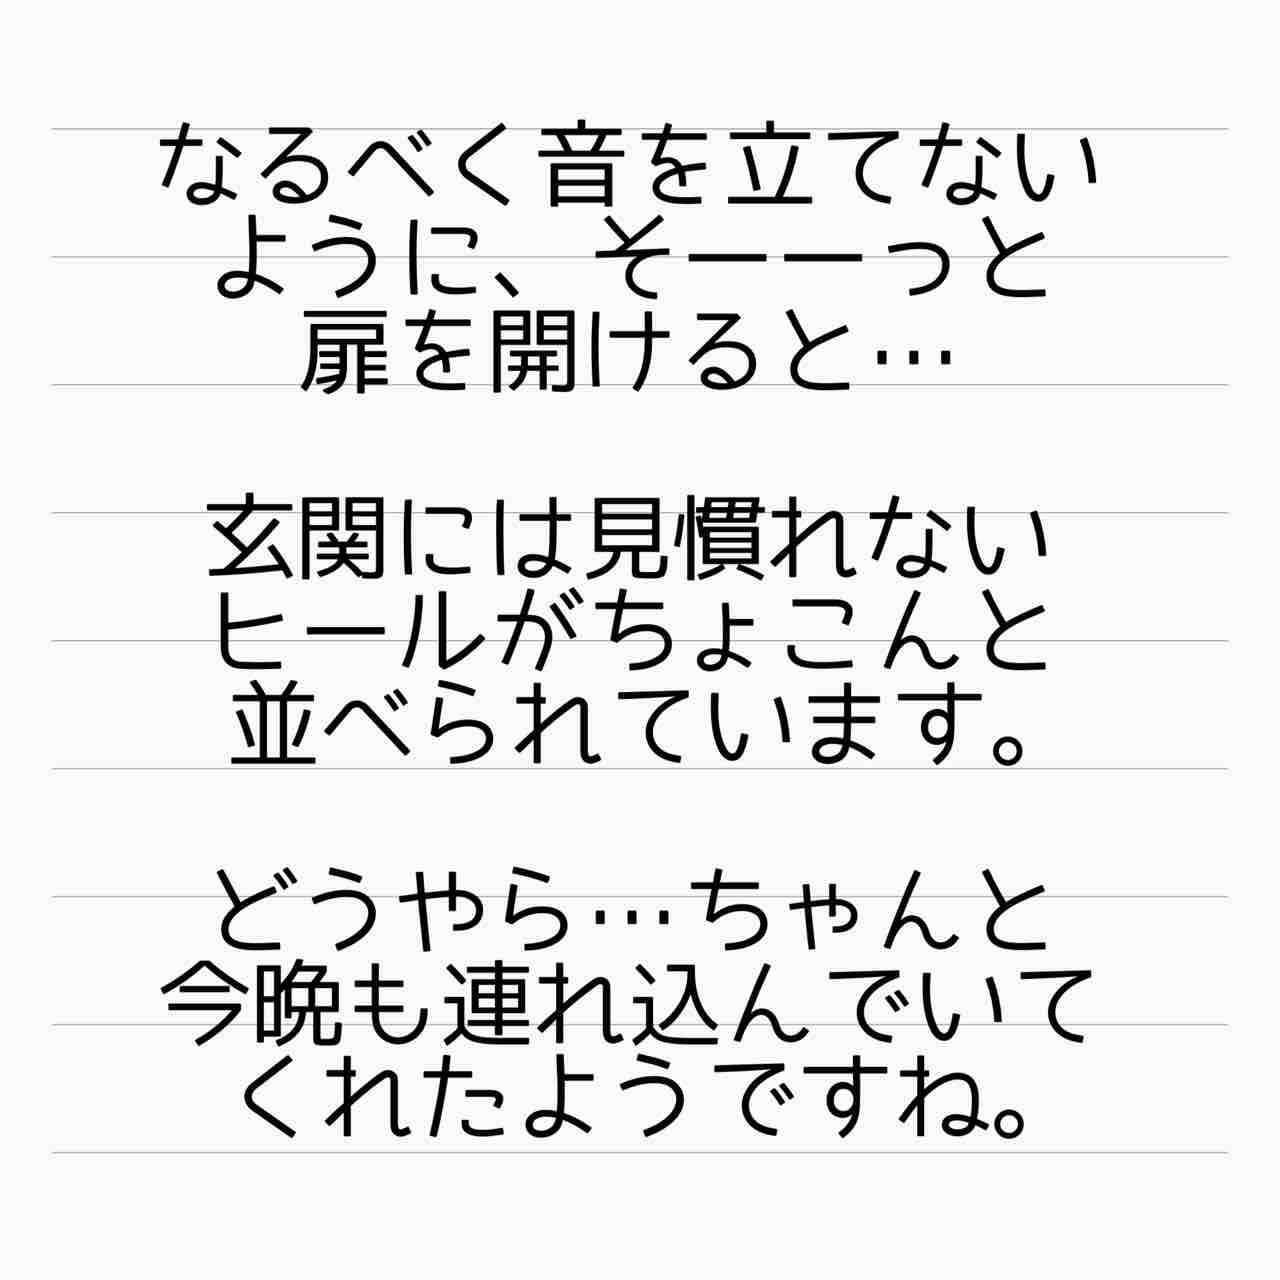 なるべく音を立てない
ように、そーーっと
扉を開けると…
玄関には見慣れない
ヒールがちょこんと
並べられています。
どうやら…ちゃんと
今晩も連れ込んでいて
くれたようですね。